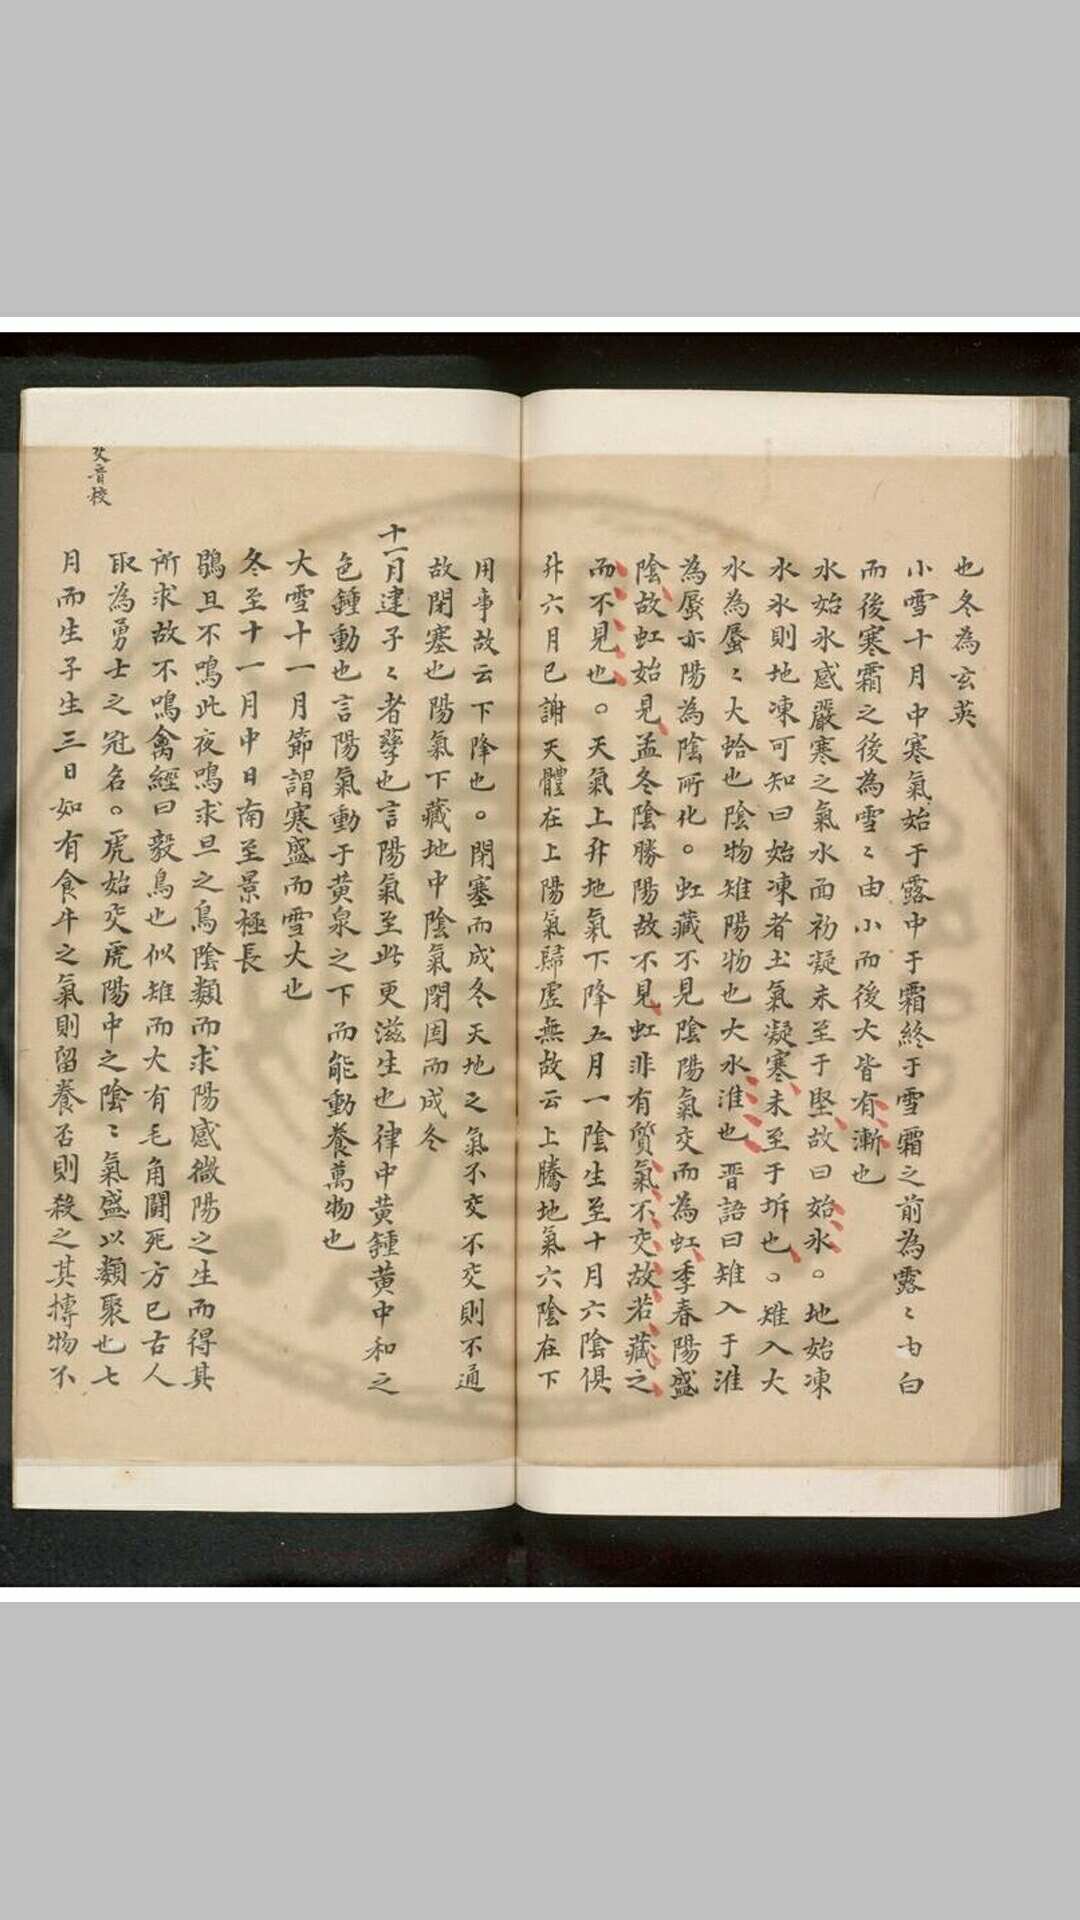 也冬為玄英
小雪十月中寒氣始于露中于霜終于雪霜之前為露〻白
而後寒霜之後為雪〻由小而後大皆有漸也
水始氷感嚴寒之氣水面初凝未至于堅故曰始氷。地始凍
水氷則地凍可知曰始凍者土氣凝寒未至于坼也。雉入大
水為蜃〻大蛤也陰物雉陽物也大水淮也晋語曰雉入于淮
為蜃亦陽為陰所化。虹藏不見陰陽氣交而為虹季春陽盛
陰故虹始見孟冬陰勝陽故不見虹非有質氣不交故若藏之
而不見也。天氣上升地氣下降五月一陰生至十月六陰俱
升六月已謝天體在上陽氣歸虛無故云上騰地氣六陰在下
用事故云下降也。閉塞而成冬天地之氣不交不交則不通
故閉塞也陽氣下藏地中陰氣閉固而成冬
十一月建子〻者孳也言陽氣至此更滋生也律中黃鍾黃中和之
色鍾動也言陽氣動于黃泉之下而能動養萬物也
大雪十一月節謂寒盛而雪大也
冬至十一月中日南至景極長
鶡旦不鳴此夜鳴求旦之鳥陰類而求陽感微陽之生而得其
所求故不鳴禽經曰毅鳥也似雉而大有毛角鬪死方已古人
取為勇士之冠名。虎始交虎陽中之陰〻氣盛以類聚也七
月而生子生三日如有食牛之氣則留養否則殺之其摶物不
音校